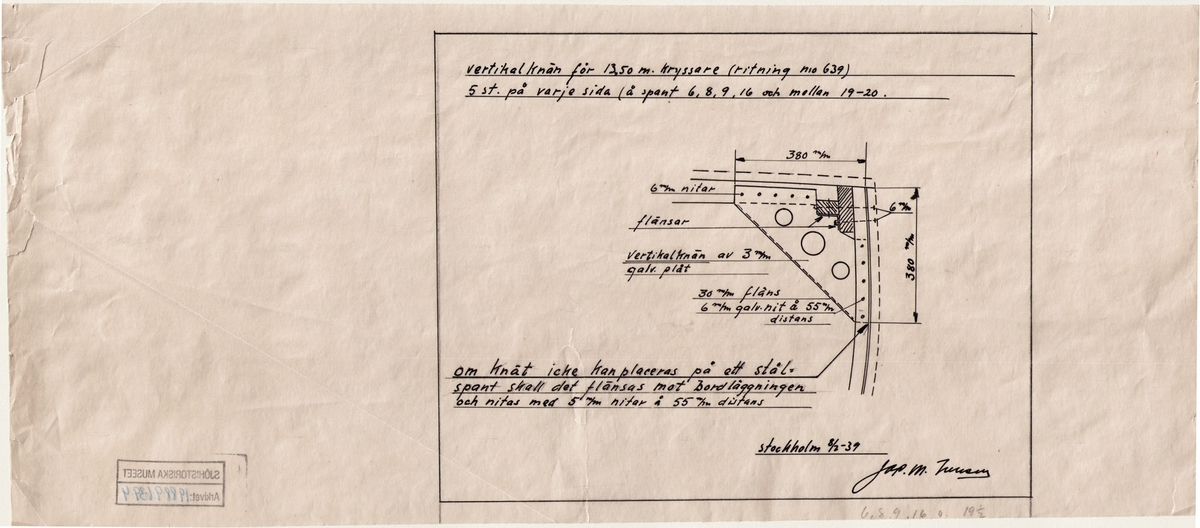 Vertikal Knän för 13,50 m. Kryssare (ritning no 639)
5 st. på varje sida (å spant 6, 8, 9, 16 och mellan 19-20.
380 m/m
6 m/m nitar
6 m/m
flänsar
380 m/m
Vertikalknän av 3 m/m
galv. plåt
30 m/m fläns
6 m/m galv. nit å 55 m/m
distans
om Knät icke kan placeras på ett stål-
spant skall det flänsas mot Bordläggningen
och nitas med 5 m/m nitar å 55 m/m distans
Stockholm 8/2-39
SJÖHISTORISKA MUSEET
Arkivet:
6, 8, 9, 16 o. 19½